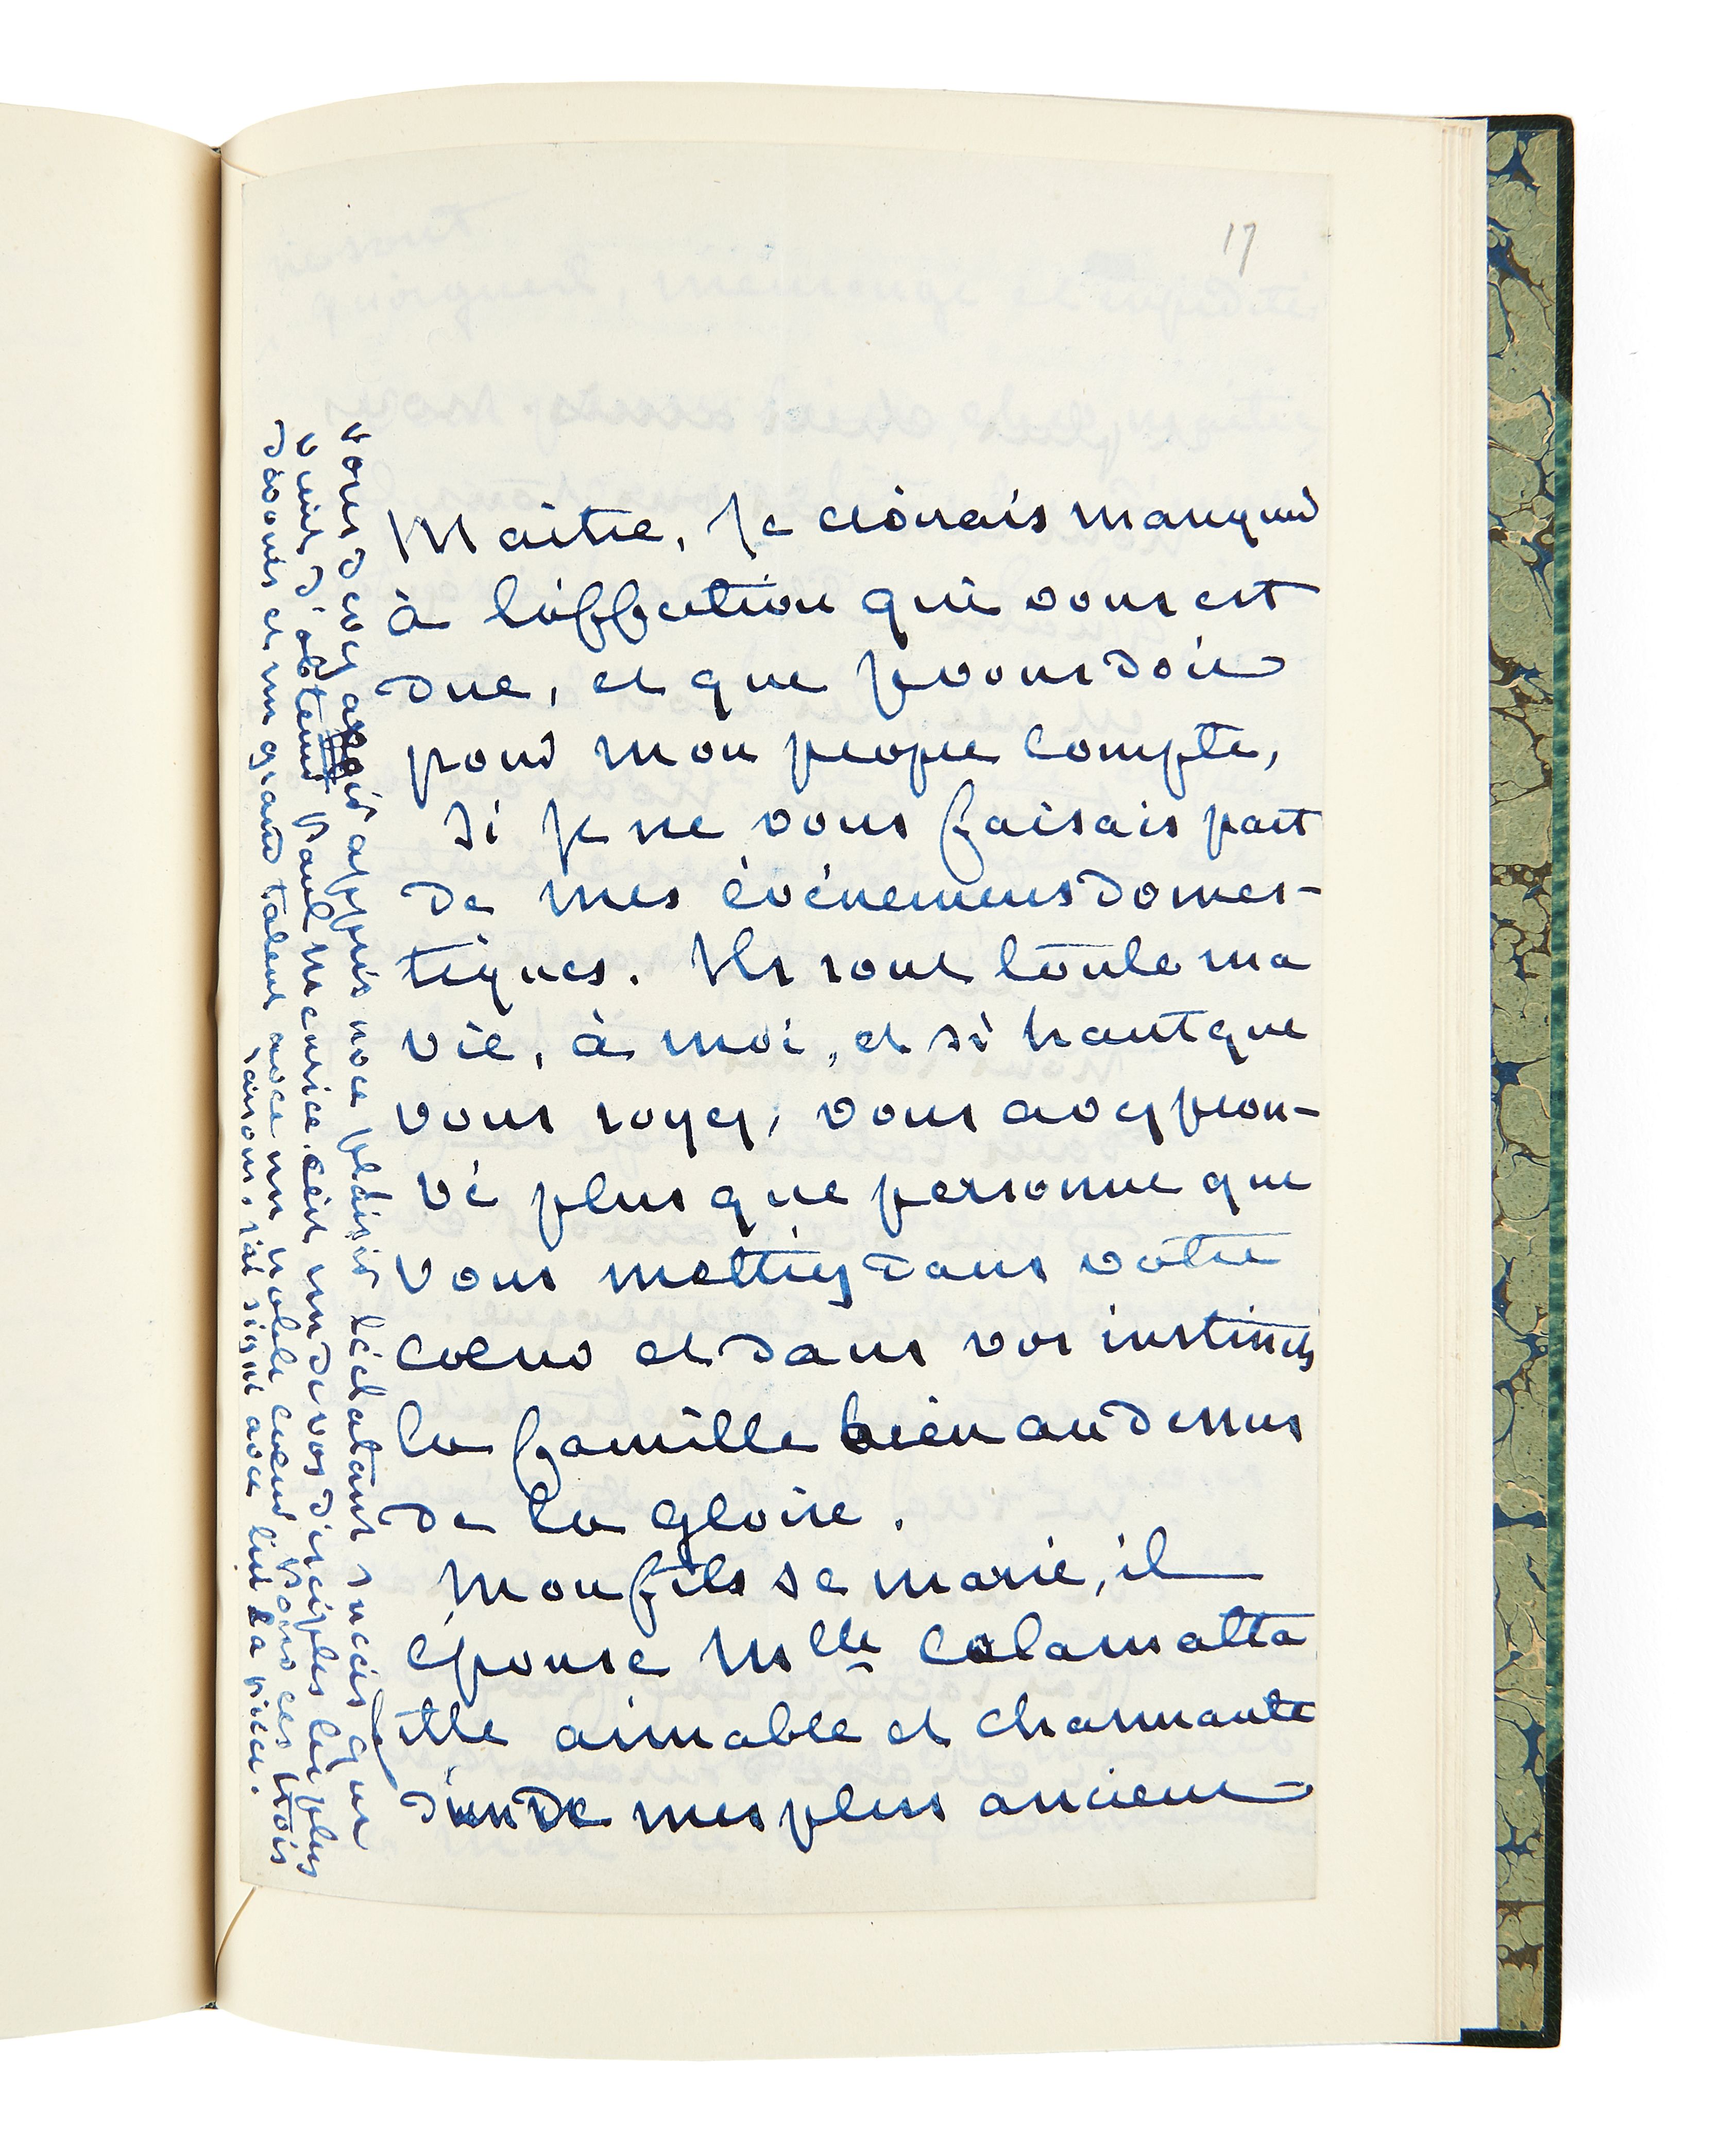 17
Maitre, Je croirais manquer
à l'affection qui vous est
due, et que je vous dois
pour mon propre compte,
si je ne vous faisais part
de mes événemens domes-
tiques. Ils sont toute ma
vie, à moi, et si haut que
vous soyez, vous avez prou-
vé plus que personne que
vous mettiez dans votre
coeur et dans vos instincts
la famille bien au dessus
de la gloire.
Mon fils se marie, il
épouse Mlle Calamatta
fille aimable et charmante
d'un de mes plus anciens
vous devez avoir appris avec plaisir l'éclatant succès que
vient d'obtenir Paul Meurice. C'est un de vos disciples les plus
dévoués et un grand talent avec un noble coeur. Pour ces trois
raisons, j'ai signé avec lui la pièce.